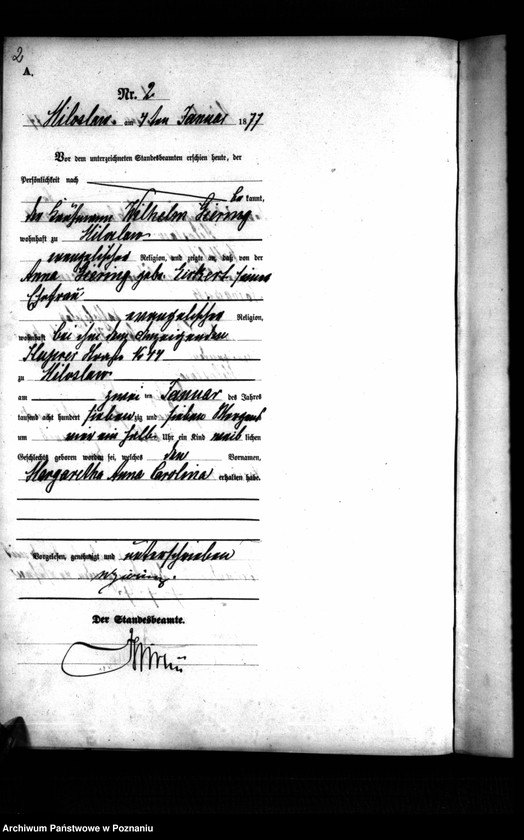 2
A.
Nr. 2
Miloslaw am 4 ten Januar 1877
Vor dem unterzeichneten Standesbeamten erschien heute, der
Persönlichkeit nach
be kannt,
der Kaufmann Wilhelm Giering
wohnhaft zu Miloslaw
evangelischer Religion, und zeigte an, daß von der
Anna Giering geb. seiner
Ehefrau
evangelischer Religion,
wohnhaft bei ihm dem Anzeigenden
No 44
zu Miloslaw
am zwei ten Januar des Jahres
tausend acht hundert sieben zig und sieben Morgens
um ein halb Uhr ein Kind weib lichen
Geschlechts geboren worden sei, welches den Vornamen,
Margaretha Anna Carolina erhalten habe.
Vorgelesen, genehmigt und unterschrieben
Der Standesbeamte.
Archiwum Państwowe w Poznaniu